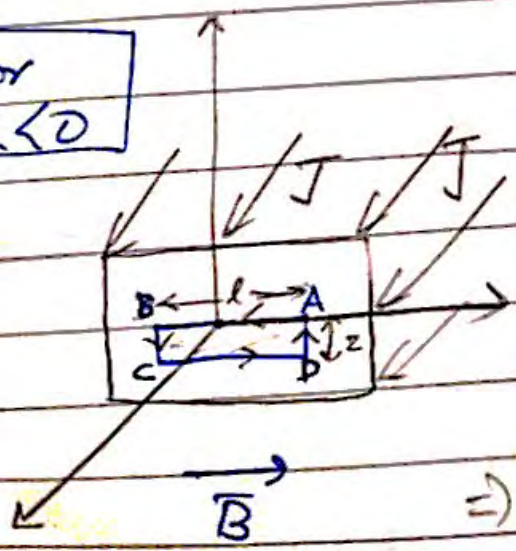 or
<0
J
J
B l A
C D z
B =)